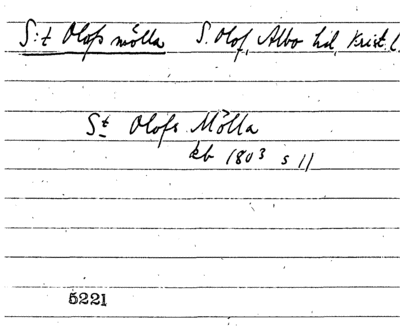 S:t Olofs mölla S. Olof, Albo hd, Krist. l.
St Olofs Mölla
kb 1803 s 11
5221